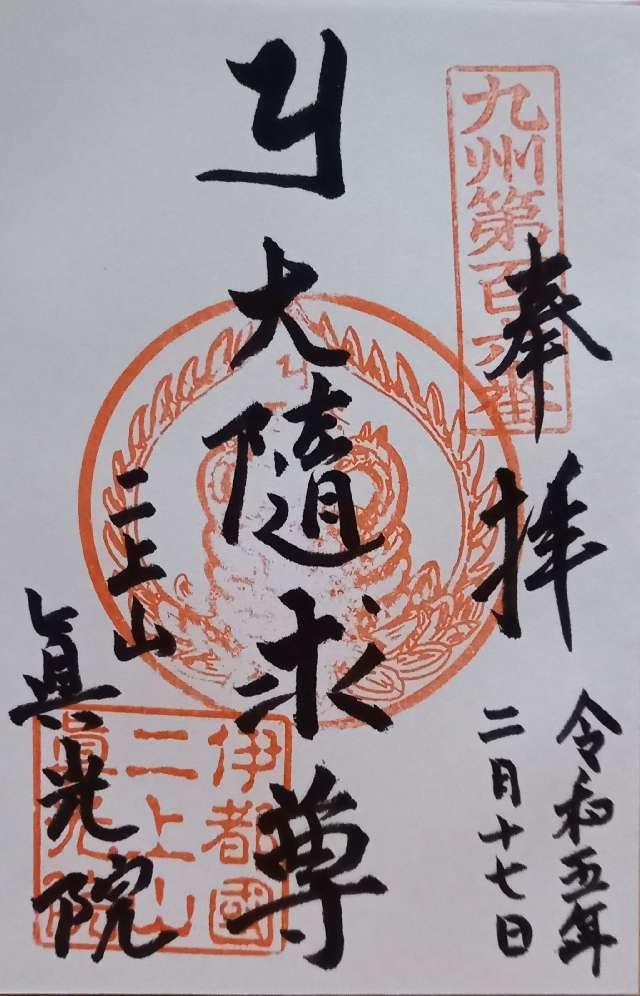 九州第百六番
奉拝
令和五年
二月十七日
大随求尊
二上山
眞光院
伊都國
二上山
眞光院